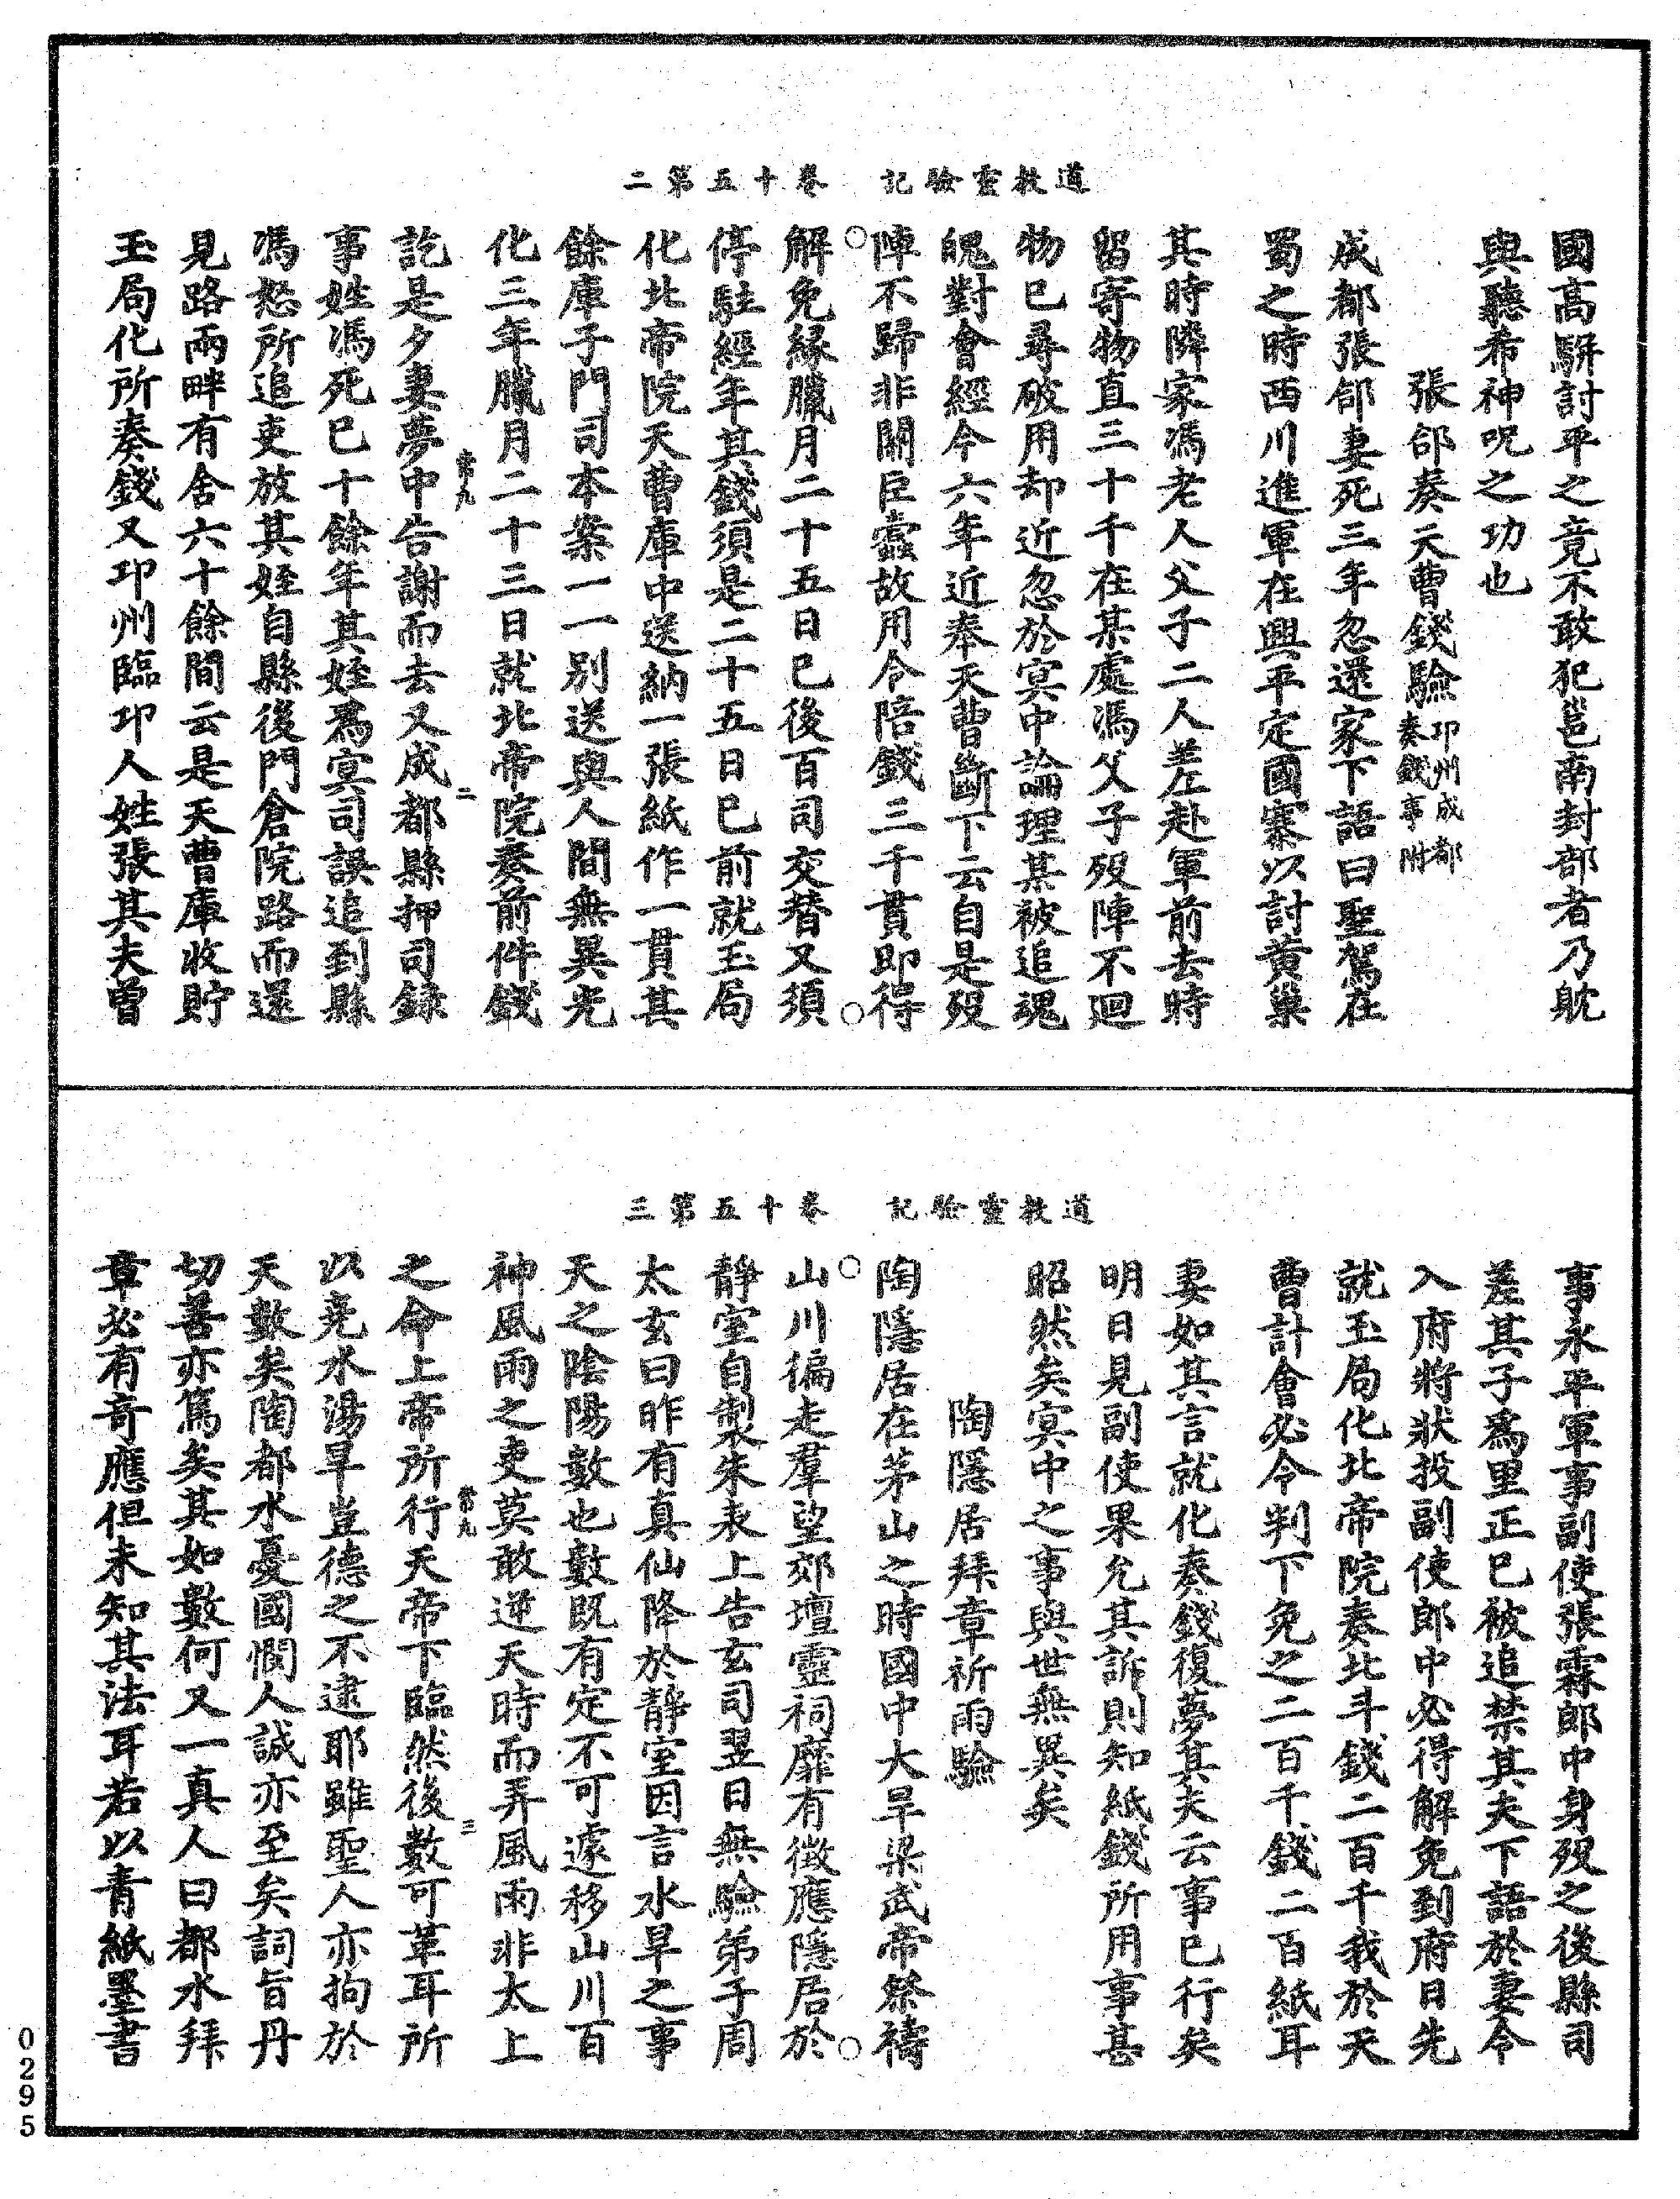 道教靈驗記　卷十五第二
國高駢討平之竟不敢犯邕南封部者乃躭
與聽希神呪之功也
張郃奏天曹錢驗邛州成都奏錢事附
成都張郃妻死三年忽還家下語曰聖駕在
蜀之時西川進軍在興平定國寨以討黃巢
其時隣家馮老人父子二人差赴軍前去時
留寄物直三十千在某處馮父子歿陣不迴
物已尋破用却近忽於冥中論理某被追魂
魄對會經今六年近奉天曹斷下云自是歿
陣不歸非關臣蠹故用令陪錢三千貫即得
解免緣臘月二十五日已後百司交替又須
停駐經年其錢須是二十五日已前就玉局
化北帝院天曹庫中送納一張紙作一貫其
餘庫子門司本案一一別送與人間無異光
化三年臘月二十三日就北帝院奏前件錢
訖是夕妻夢中告謝而去又成都縣押司錄
事姓馮死已十餘年其姪爲冥司誤追到縣
馮怒所追吏放其姪自縣後門倉院路而還
見路兩畔有舍六十餘間云是天曹庫收貯
玉局化所奏錢又邛州臨邛人姓張其夫曾
道教靈驗記　卷十五第三
事永平軍事副使張霖郎中身歿之後縣司
差其子爲里正已被追禁其夫下語於妻令
入府將狀投副使郎中必得解免到府日先
就玉局化北帝院奏北斗錢二百千我於天
曹計會必令判下免之二百千錢二百紙耳
妻如其言就化奏錢復夢其夫云事已行矣
明日見副使果允其訴則知紙錢所用事甚
昭然矣冥中之事與世無異矣
陶隱居拜章祈雨驗
陶隱居在茅山之時國中大旱梁武帝祭禱
山川徧走羣望郊壇靈祠靡有徵應隱居於
靜室自製朱表上告玄司翌日無驗弟子周
太玄曰昨有真仙降於靜室因言水旱之事
天之陰陽數也數既有定不可遽移山川百
神風雨之吏莫敢逆天時而弄風雨非太上
之命上帝所行天帝下臨然後數可革耳所
以堯水湯旱豈德之不逮耶雖聖人亦拘於
天數矣陶都水憂國憫人誠亦至矣詞旨丹
切善亦篤矣其如數何又一真人曰都水拜
章必有奇應但未知其法耳若以青紙墨書
0295